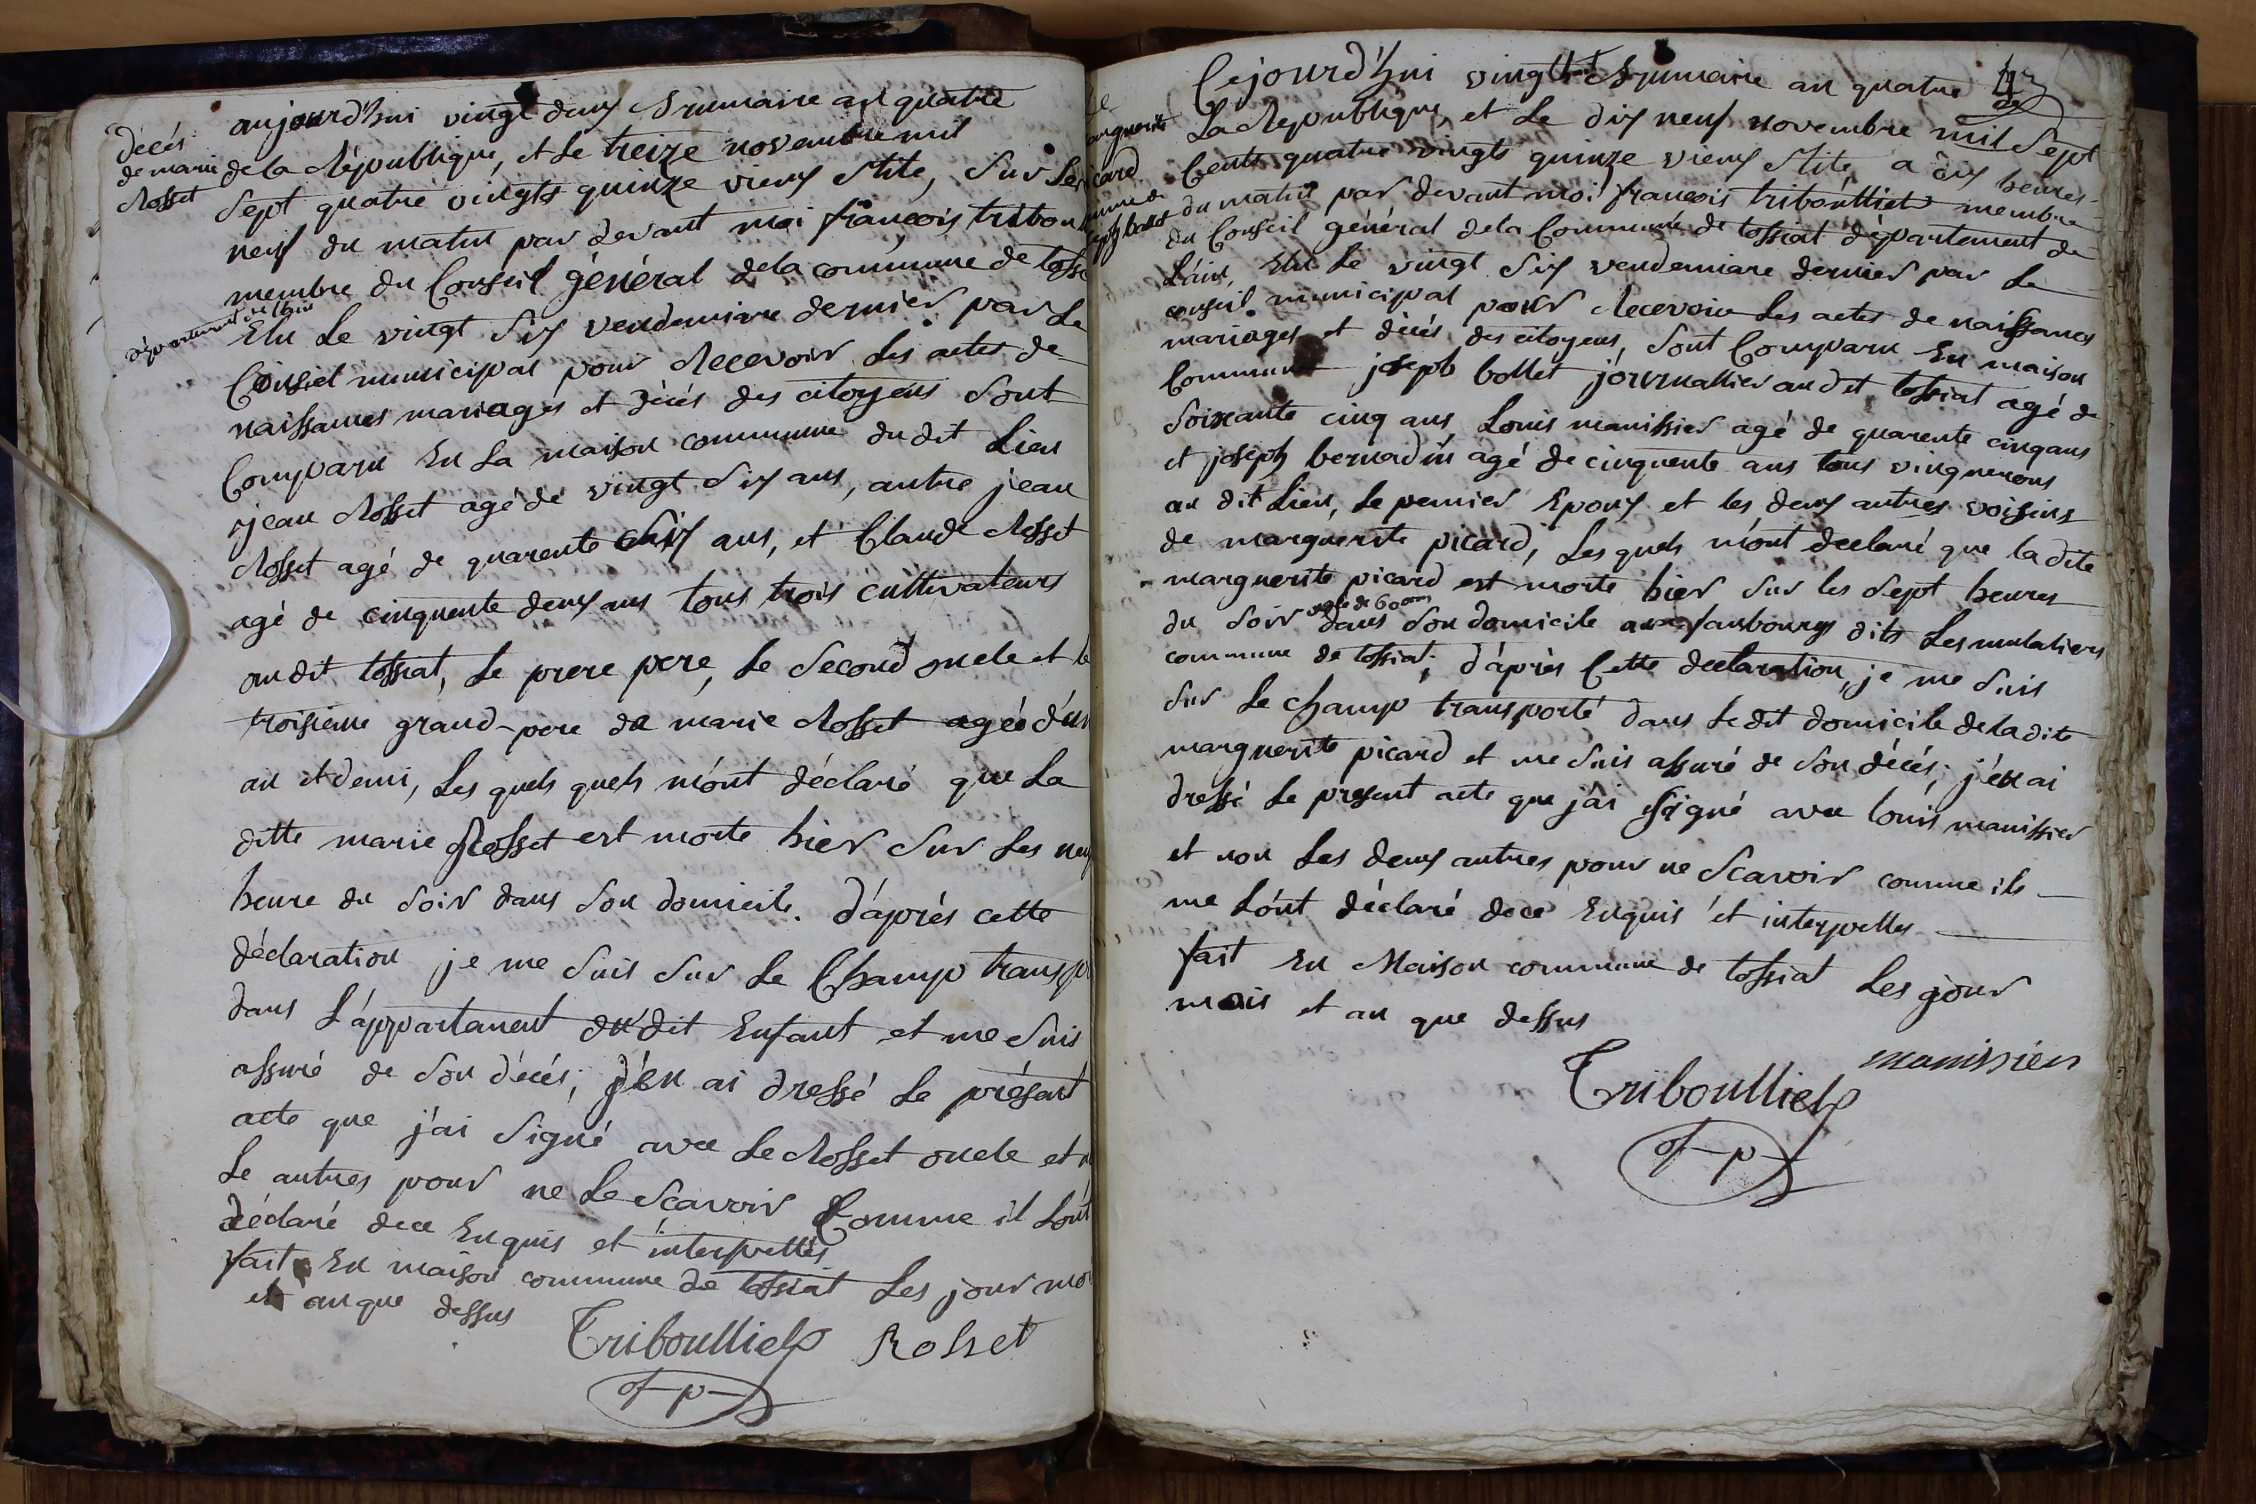 décés
de marie
Rosset
aujourd'hui vingt deux brumaire an quatre
de la République, et le treize novembre mil
sept quatre vingts quinze vieux stite, sur les
neuf du matin par devant moi françois tribou
membre du Conseil général de la commune de toss
département de l'ain
Elu le vingt six vendemiaire dernier par le
Conseil municipal pour Recevoir les actes de
naissances mariages et décés des citoyens sont
Comparu En la maison commune du dit Lieu
jean Rosset agé de vingt six ans, autre jean
Rosset agé de quarente six ans, et Claude Rosset
agé de cinquente deux ans tous trois cultivateurs
au dit tossiat, le prere pere, le second oncle et le
troisieme grand-pere de marie Rosset agée d'un
an et demi, les quels quels m'ont déclaré que la
ditte marie Rosset est morte hier sur les neuf
heure du soir dans son domicile. d'après cette
déclaration je me suis sur le Champ transp
dans l'appartanent du dit Enfant et me suis
assuré de son décés; j'en ai dressé le présent
acte que j'ai signé avec le Rosset oncle et
le autres pour ne le scavoir Comme il l'ont
déclaré dece Enquis et interpellés
fait En maison commune de tossiat les jour moi
et an que dessus
Triboulliet Rosset
of-p-
arguerite
icard
femme de
joseph bollet
Cejourd'hui vingt huit brumaire an quatre de
La Republique, et le dix neuf novembre mil sept
Cents quatre vingts quinze vieux stite, a dix heures
du matin par devant moi françois triboulliet membre
du Conseil général de la Commune de tossiat département de
l'ain, Elu le vingt six vendemiaire dernier par le
conseil municipal pour Recevoir les actes de naissances
mariages et décés des citoyens, sont Comparu En maison
Commune joseph bollet journallier au dit tossiat agé de
soixante cinq ans Louis manissier agé de quarente cinq ans
et joseph bernadin agé de cinquente ans tous vinguerons
au dit Lieu, le pemier Epoux et les deux autres voisins
de marguerite picard, Les quels m'ont declaré que la dite
marguerite picard est morte hier sur les sept heures
du soir agée de 60 ans dans son domicile au faubourg dits Les mulatiers
commune de tossiat; d'après Cette declaration, je me suis
sur le champ transporté dans le dit domicile de la dite
marguerite picard et me suis assuré de son décés; j'en ai
dressé le present acte que j'ai signé avec louis manissier
et non les deux autres pour ne scavoir comme ils
me l'ont déclaré dece Enquis et interpelles
fait En Maison commune de tossiat Les jour
mois et an que dessus
manissier
Triboulliet
of-p-